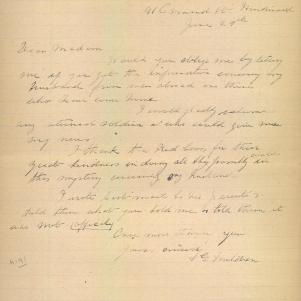 Dear Madam
Would you oblige me by letting
me if you get the information concerning my
husband from men abroad or those
who have come home
I would gladly
any returned soldier who could give me
any news
I thank the Red Cross for their
great kindness in doing all they possibly could in
this mystery concerning my husband
I wrote to his parents &
told them what you told me & told them it
was not official
Once more thank you
yours